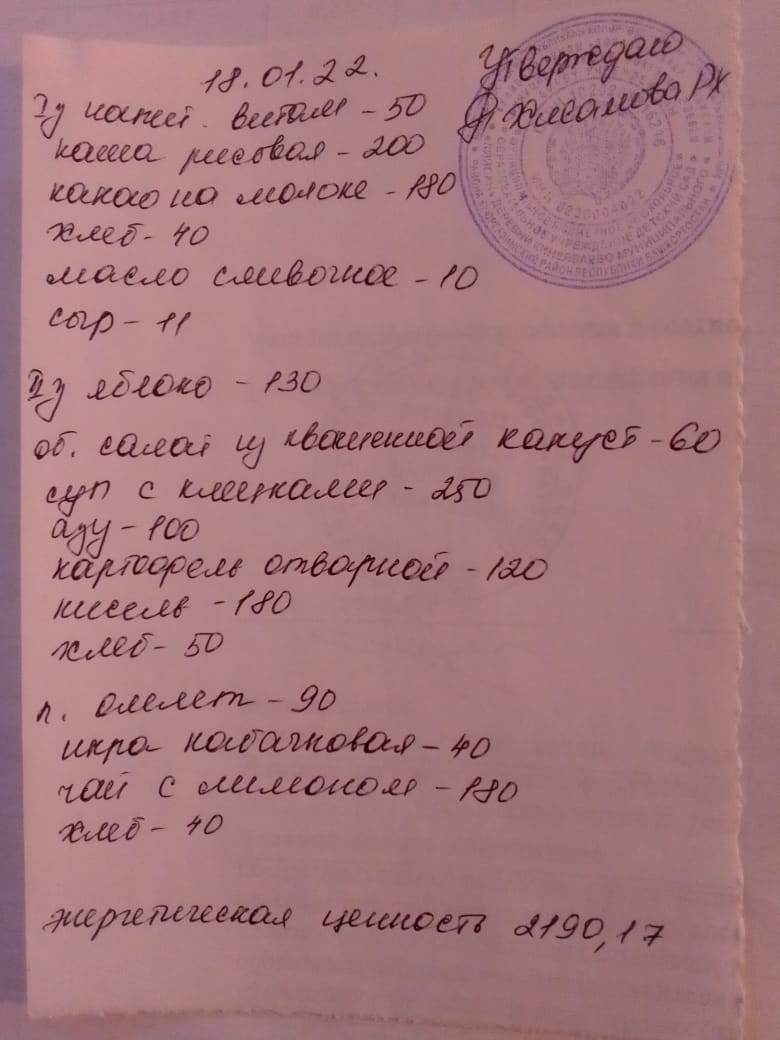 18.01.22.
Утверждаю
Хисамова РХ
Iз напит. витам - 50
каша рисовая - 200
какао на молоке - 180
хлеб - 40
масло сливочное - 10
сыр - 11
IIз яблоко - 130
об. салат из квашенной капуст - 60
суп с клецками - 250
азу - 100
картофель отварной - 120
кисель - 180
хлеб - 50
п. омлет - 90
икра кабачковая - 40
чай с лимоном - 180
хлеб - 40
энергетическая ценность 2190,17